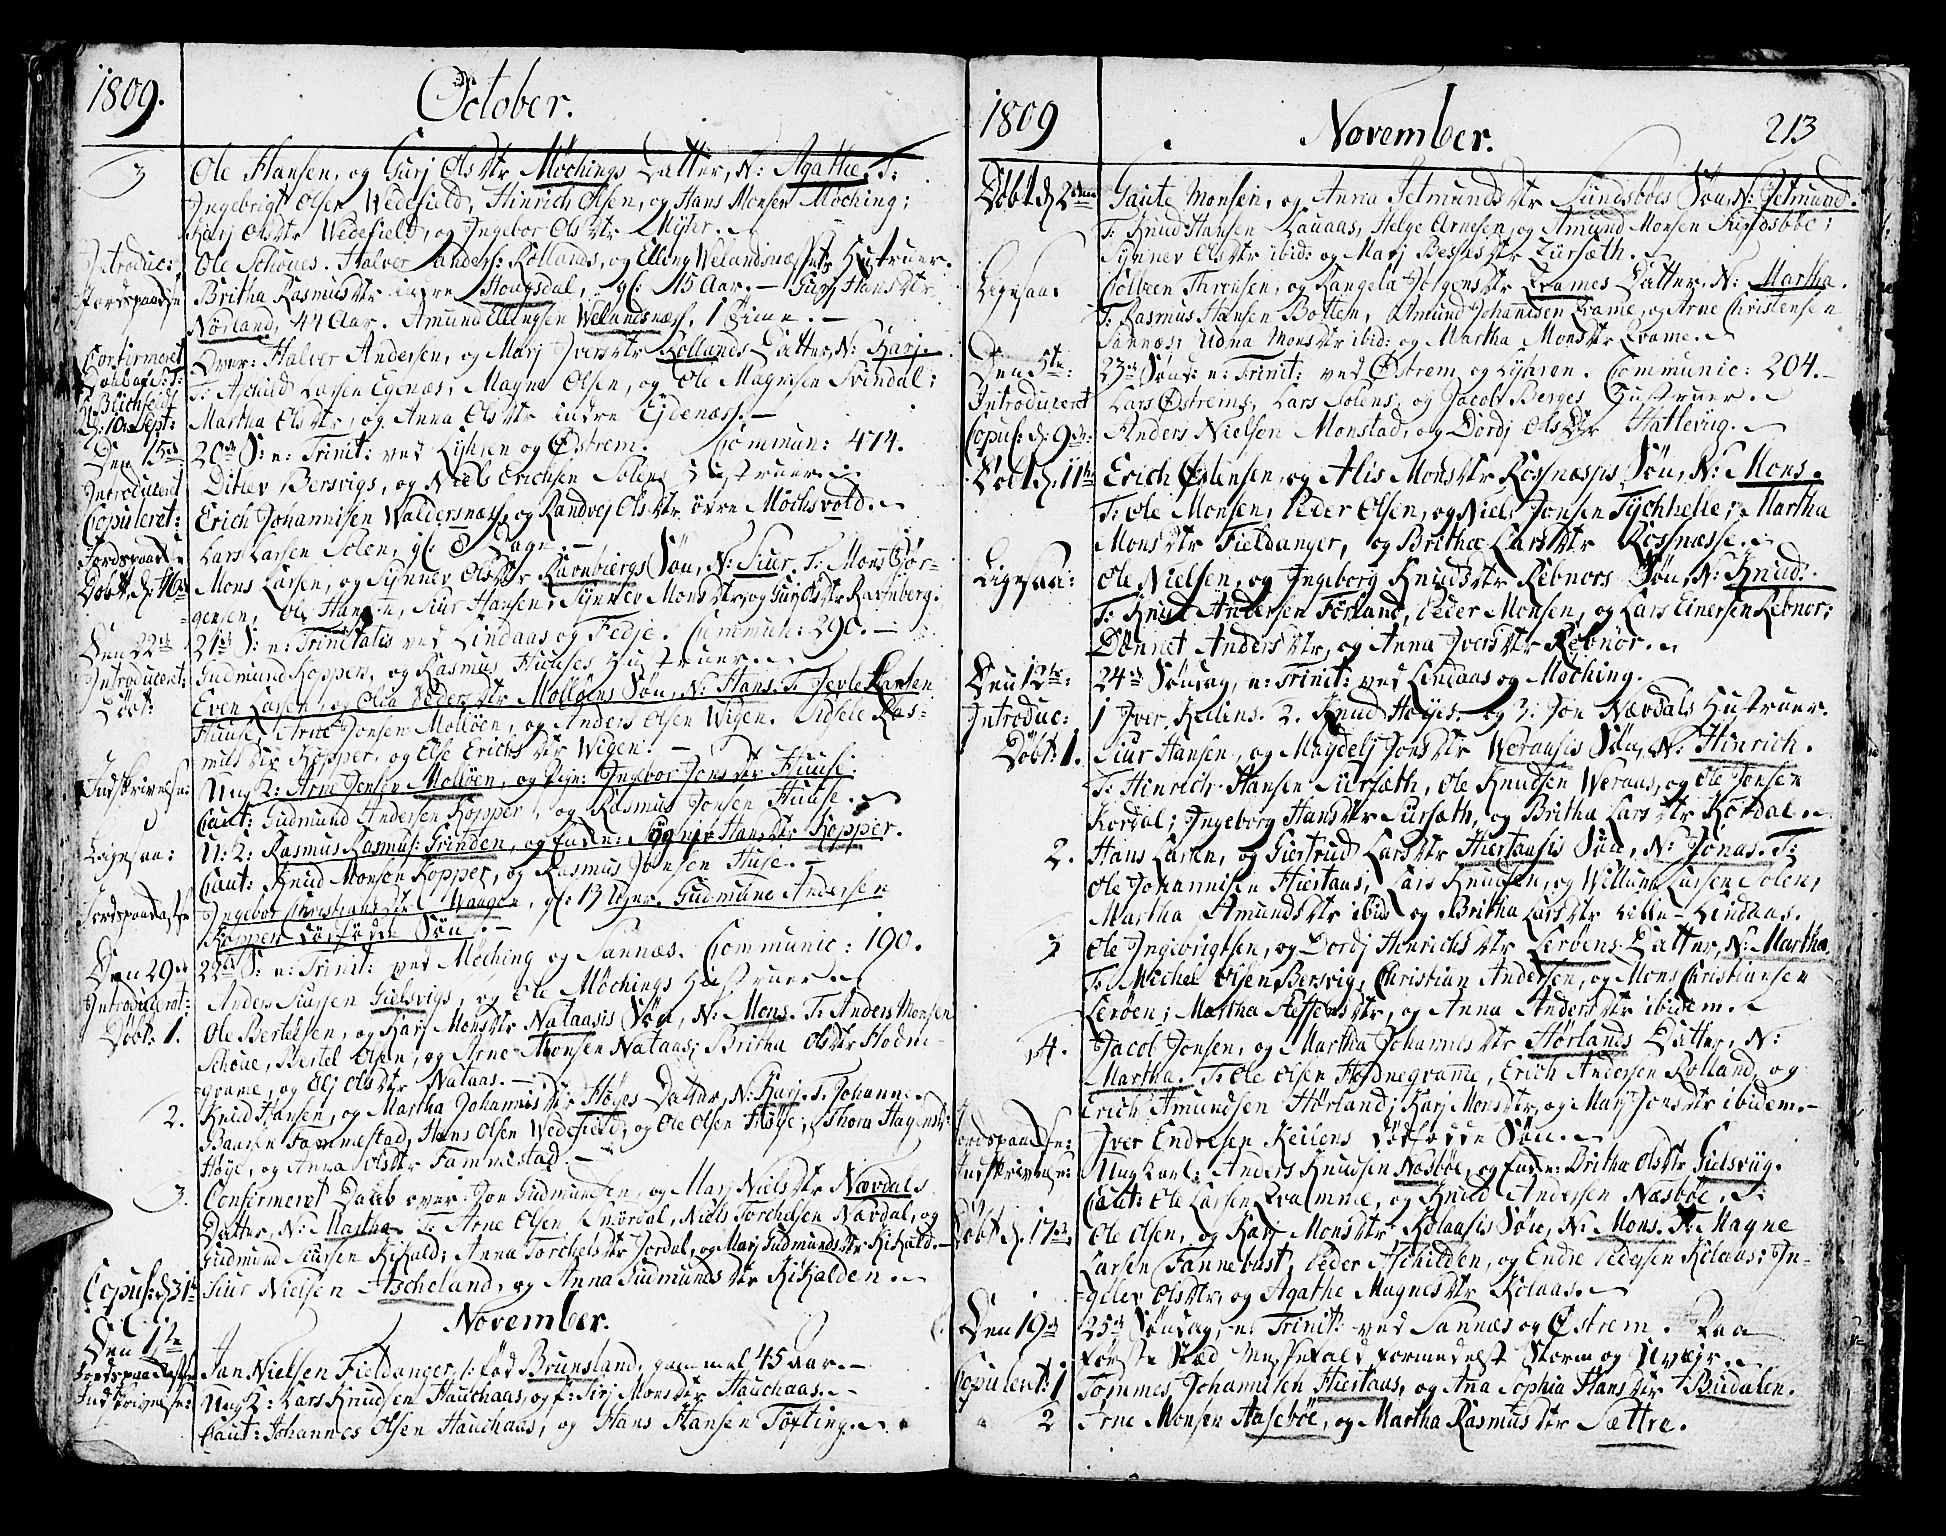 1809.
October.
3 Ole Hansen, og Gurj Olsdtr Möchings Datter, N: Agathe. T:
Ingebrigt Olsen Wedefield, Hinrich Olsen, og Hans Monsen Möching;
Karj Olsdtr Wedefield, og Ingebor Olsdtr Myter.
Introduc: Ole Schöues. Halver Anders: Rollands, og Elling Welandsnæs Hustruer.
Jordspaad: Britha Rasmusdtr indre Hougsdal, gl: 15 Aar. Gurj Hansdtr
Nödland, 44 Aar. Amund Ellingsen Welandsnæss, 1 Time.
Confirmeret Over: Halver Andersen, og Marj Iversdtr Rollands Datter, N: Karj.
T: Aschild Larsen Egenæs, Magne Olsen, og Ole Magnesen Svindal;
d: 10de Sept: Martha Olsdtr, og Anna Olsdtr indre Eidenæss.
Den 15de 20de S: e: Trinit: ved Lyhren og Østrem. Commun: 474.
Introduceret Ditlev Bersvigs, og Niels Erichsen Solens Hustruer.
Copuleret: Erich Johannesen Waldersnæss, og Randvej Olsdtr övre Mochsvold.
Jordspaad: Lars Larsen Solen, gl: 8 Dage.
Döbt, d: 16de Mons Larsen, og Synnev Olsdtr Ravnbergs Søn, N: Siur. T: Mons Jör-
gensen, Ole Hansen, Siur Hansen; Synnev Monsdtr, og Gurj Olsdtr Ravnberg.
Den 22de 21de S: e: Trinitatis ved Lindaas og Fedje. Commun: 290.
Introduceret: Gudmund Koppers, og Rasmus Huuses Hustruer.
Döbt: Even Larsen, og Olva Pedersdtr Mollöens Søn, N: Hans. T: Jerle Larsen
Huuse, Arne Jonsen Mollöen, og Anders Olsen Wigen. Sidsele Ras-
musdtr Kopper, og Else Erichsdtr Wigen.
Indskrivelse: Ung K: Arne Jensen Mollöen, og Pige: Ingebor Jonsdtr Huuse.
Caut: Gudmund Andersen Kopper, og Rasmus Jonsen Huuse.
Ligesaa: U: K: Rasmus Rasmus: Grinden, og Enke: Hansdtr Kopper.
Caut: Knud Monsen Kopper, og Rasmus Jonsen Huse.
Jordspaadelse Ingebor Christiansdtr Waagen, gl: 13 Uger. Gudmund Andersen
Koppers dödfödde Søn.
Den 29de 22de S: e: Trinit: ved Möching og Sannæs. Communic: 190.
Introduceret: Anders Siursen Gielsvigs, og Ole Möchings Hustruer.
Döbt: 1. Ole Bertelsen, og Karj Monsdtr Nataasis Søn, N: Mons. T: Anders Monsen
Schöue, Bertel Olsen, og Arne Monsen Nataas; Britha Olsdtr Hodne-
grame, og Elj Olsdtr Nataas.
2. Knud Hansen, og Martha Johannesdtr Höyes Datter, N: Karj. T: Johannes
Baarsen Fammestad, Hans Olsen Wedefield, og Ole Olsen Höye; Thora Hagensdtr
Höye, og Anna Olsdtr Fammestad.
3. Confirmeret Daab over: Jon Gudmundsen, og Marj Nielsdtr Nævdals
Datter, N: Martha. T: Arne Olsen Smördal, Niels Torchelsen Nævdal, og
Gudmund Siursen Kikald; Anna Torchelsdtr Jordal, og Marj Gudmundsdtr Kikald.
Copul: d. 31te Siur Nielsen Ascheland, og Anna Gudmundsdtr Kikalden.
November.
Den 1te
Jordspaadelse Jan Nielsen Fieldanger /: född Brunsland, gammel 45 Aar.
Indskrivelse: Ung K: Lars Knudsen Hauchaas, og f: Sirj Monsdtr Hauchaas.
Caut: Johannes Olsen Hauchaas, og Hans Hansen Töfting.
1809
November.
213
Döbt d 2den Gaute Monsen, og Anna Jetmundsdtr Sundsböes Søn, N: Jetmund.
T: Knud Hansen Lauaas, Helge Arnesen, og Amund Monsen Sundsböe;
Synnev Olsdtr ibid: og Marj Besesdtr Lursæth.
Ligesaa Colbeen Thronsen, og Rangela Jörgensdtr Krames Datter, N: Martha.
T: Rasmus Hansen Botten, Amund Johannesen Krame, og Arne Christensen
Sannæs; Udna Monsdtr ibid: og Martha Monsdtr Krame.
Den 5te: 23de Sönd: e: Trinit: ved Østrem og Lyhren. Communic: 204.
Introduceret Lars Østrems, Lars Solens, og Jacob Berges Hustruer.
Copul: d: 9de: Anders Nielsen Monstad, og Dordj Olsdtr Hatlevig.
Döbt d. 11te Erich Østensen, og Alis Monsdtr Rossnæsses Søn, N: Mons.
T: Ole Monsen, Peder Olsen, og Niels Jonsen Tychhelle; Martha
Monsdtr Fieldanger, og Britha Larsdtr Rosnæsse.
Ligesaa: Ole Nielsen, og Ingeborg Knudsdtr Rebnors Søn, N: Knud.
T: Knud Andersen Förland, Peder Monsen, og Lars Einersen Rebnor;
Dönnet Andersdtr, og Anna Iversdtr Rebnor.
Den 12te: 24de Søndag, e: Trinit: ved Lindaas og Möching.
Introduc: 1 Iver Keilens. 2. Knud Höyes. og 3. Jon Nævdals Hustruer.
Döbt: 1. Siur Hansen, og Magdelj Jonsdtr Weraasis Søn, N: Hinrich.
T: Hinrich Hansen Siursæth, Ole Knudsen Weraas, og Ole Jonsen
Kordal; Ingeborg Hansdtr Sursæth, og Britha Larsdtr Kordal.
2. Hans Larsen, og Giertrud Larsdtr Hiertaasis Søn, N: Jonas. T:
Ole Johannesen Hiertaas, Lars Knudsen, og Willum Larsen Solen;
Martha Amundsdtr ibid: og Britha Larsdtr Lille-Lindaas.
3 Ole Ingebrigtsen, og Dordj Hinrichsdtr Leröens Datter, N: Martha.
T: Michel Olsen Bersvig, Christian Andersen, og Mons Christiansen
Leröen; Martha Steffensdtr, og Anna Andersdtr ibidem.
4. Jacob Jonsen, og Martha Johannesdtr Hörlands Datter, N:
Martha. T: Ole Olsen Hodnegrame, Erich Andersen Rolland, og
Erich Amundsen Hörland; Karj Monsdtr, og Marj Jonsdtr ibidem.
Jordspaadelse: Iver Endresen Keilens dödfödde Søn.
Indskrivelse: Ung Karl: Anders Knudsen Nasböe, og Enke: Britha Olsdtr Gielsvig.
Caut: Ole Larsen Kramme, og Knud Andersen Næsböe.
Döbt d. 17de: Ole Olsen, og Karj Monsdtr Kolaasis Søn, N: Mons. T: Magne
Larsen Fannebust, Peder Aschilden, og Endre Pedersen Kolaas; In-
gelev Olsdtr, og Agathe Magnesdtr Kolaas.
Den 19de 25de Søndag, e: Trinit: ved Sannæs og Østrem. Paa
förste Sted Messefald formedelst Storm og Uvejr.
Copuleret: 1 Tommes Johannesen Hiertaas, og Ana Sophia Hansdtr Budalen.
2 Arne Monsen Haseböe, og Martha Rasmusdtr Sættre.